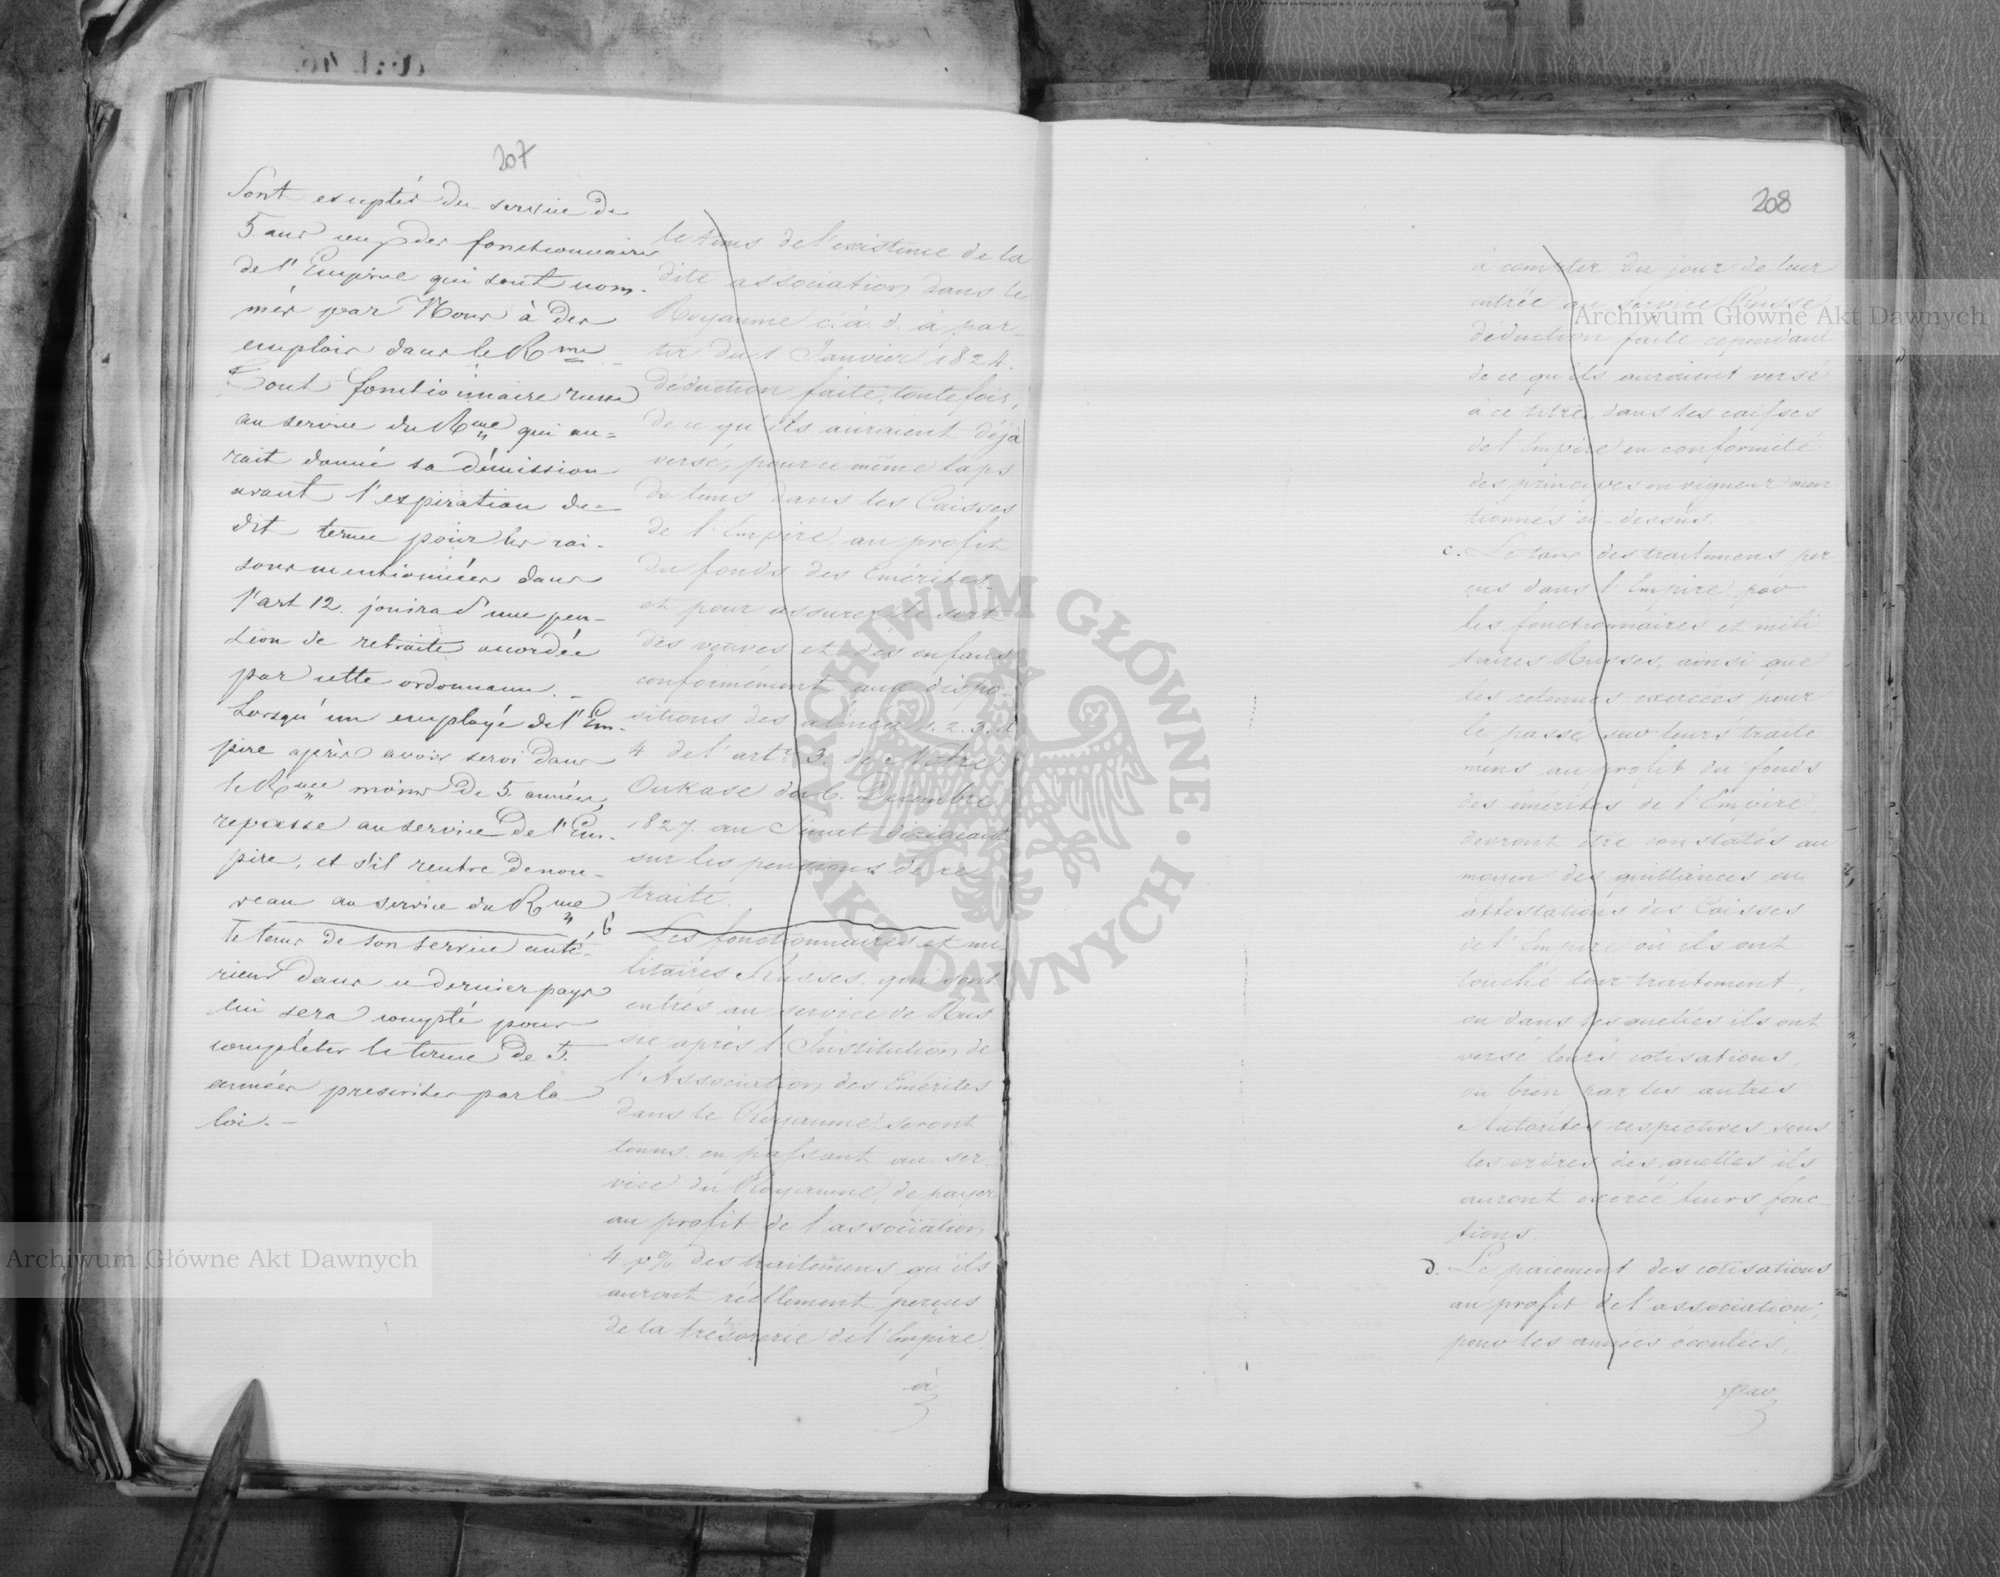 207
Sont exceptés du service de
5. ans ceux des fonctionnaires
de l'Empire qui sont nom-
més par Nous à des
emplois dans le Rme. -
Tout fonctionnaire russe
au service du Rme qui au=
rait donné sa démission
avant l'expiration du=
dit terme pour les rai-
sons mentionnées dans
l'art 12. jouira d'une pen-
sion de retraite accordée
par cette ordonnance. -
Lorsqu'un employé de l'Em-
pire après avoir servi dans
le Rme moins de 5. années,
repasse au service de l'Em-
pire, et s'il rentre de nou-
veau au service du Rme
le tems de son service anté-
rieur dans ce dernier pays
lui sera compté pour
compléter le terme de 5.
années prescrites par la
loi. -
le tems de l'existence de la
dite association dans le
Royaume c. à. d. à par-
tir du 1 Janvier 1824.
déduction faite, toutefois,
de ce qu'ils auraient déjà
versé, pour ce même laps
de tems dans les Caisses
de l'Empire, au profit
du fonds des Emérites
et pour assurer le sort
des veuves et des enfans
conformément aux dispo-
sitions des alinéa 1. 2. 3. et
4 de l'art: 3. de Notre
Oukase du 6. Décembre
1827. au Sénat dirigeant
sur les pensions de re-
traite.
b Les fonctionnaires et mi-
litaires Russes, qui sont
entrés au service de Rus
sie après l'Institution de
l'Association des Emérites
dans le Royaume, seront
tenus, en passant au ser-
vice du Royaume, de payer
au profit de l'association
4 p% des traitemens qu'ils
auront réellement perçus
de la trésorerie de l'Empire,
à
208
à compter du jour de leur
entrée au service Russe,
déduction faite cependant
de ce qu'ils auraient versé
à ce titre, dans les caisses
de l'Empire en conformité
des principes en vigueur men-
tionnés ci-dessus.
c. Le taux des traitemens per-
çus dans l'Empire par
les fonctionnaires et mili
taires Russes, ainsi que
les retenues exercées pour
le passé, sur leurs traite
mens au profit du fonds
des émérites de l'Empire,
devront être constatés au
moyen des quittances ou
attestations des Caisses
de l'Empire où ils ont
touché leur traitement,
ou dans lesquelles ils ont
versé leurs cotisations,
ou bien par les autres
Autorités respectives, sous
les ordres des quelles ils
auront exercé leurs fonc-
tions.
d. Le paiement des cotisations
au profit de l'association,
pour les années écoulées,
par
Archiwum Główne Akt Dawnych
Archiwum Główne Akt Dawnych
ARCHIWUM GŁÓWNE · AKT DAWNYCH ·